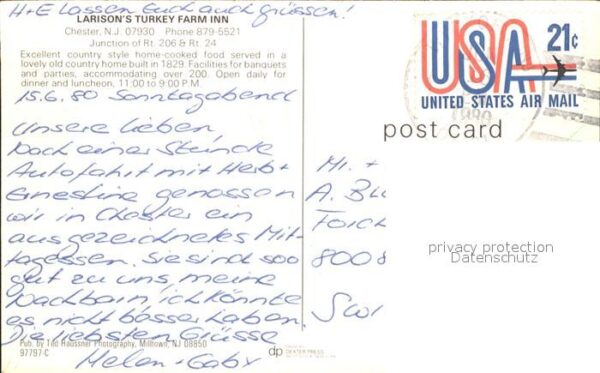 H+E Lassen Euch auch grüssen!
LARISON'S TURKEY FARM INN
Chester, N.J. 07930 Phone 879-5521
Junction of Rt. 206 & Rt. 24
Excellent country style home-cooked food served in a
lovely old country home built in 1829. Facilities for banquets
and parties, accommodating over 200. Open daily for
dinner and luncheon, 11:00 to 9:00 P.M.
15.6.80 Sonntagabend
Unsere Lieben,
Nach einer
Autofahrt mit Herb+
Ernestine genossen
wir in Chester ein
ausgezeichnetes Mit-
tagessen. Sie sind sooo
gut zu uns, meine
Nachbarin, ich könnte
es nicht besser haben.
Die liebsten Grüsse
Helen + Gaby
Pub. by Ted Haussner Photography, Milltown, NJ 08850
97797-C
dp DEXTER PRESS
USA 21c
UNITED STATES AIR MAIL
post card
A. Bl
Forch
8008
Swi
privacy protection
Datenschutz